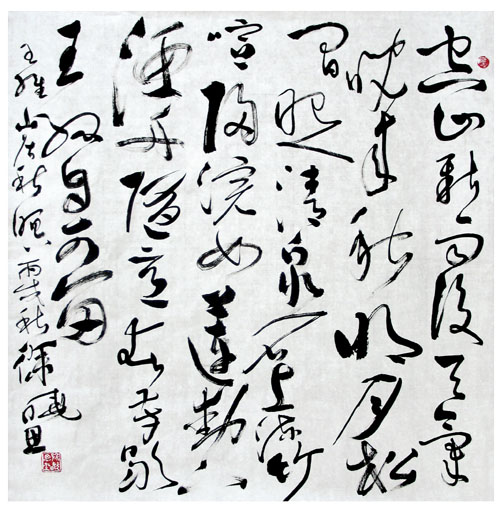 空山新雨後天氣
晚來秋明月松
間照清泉石上流竹
喧歸浣女蓮動下
漁舟隨意春芳歇
王孫自可留
王維山居秋暝丙戌秋徐曉